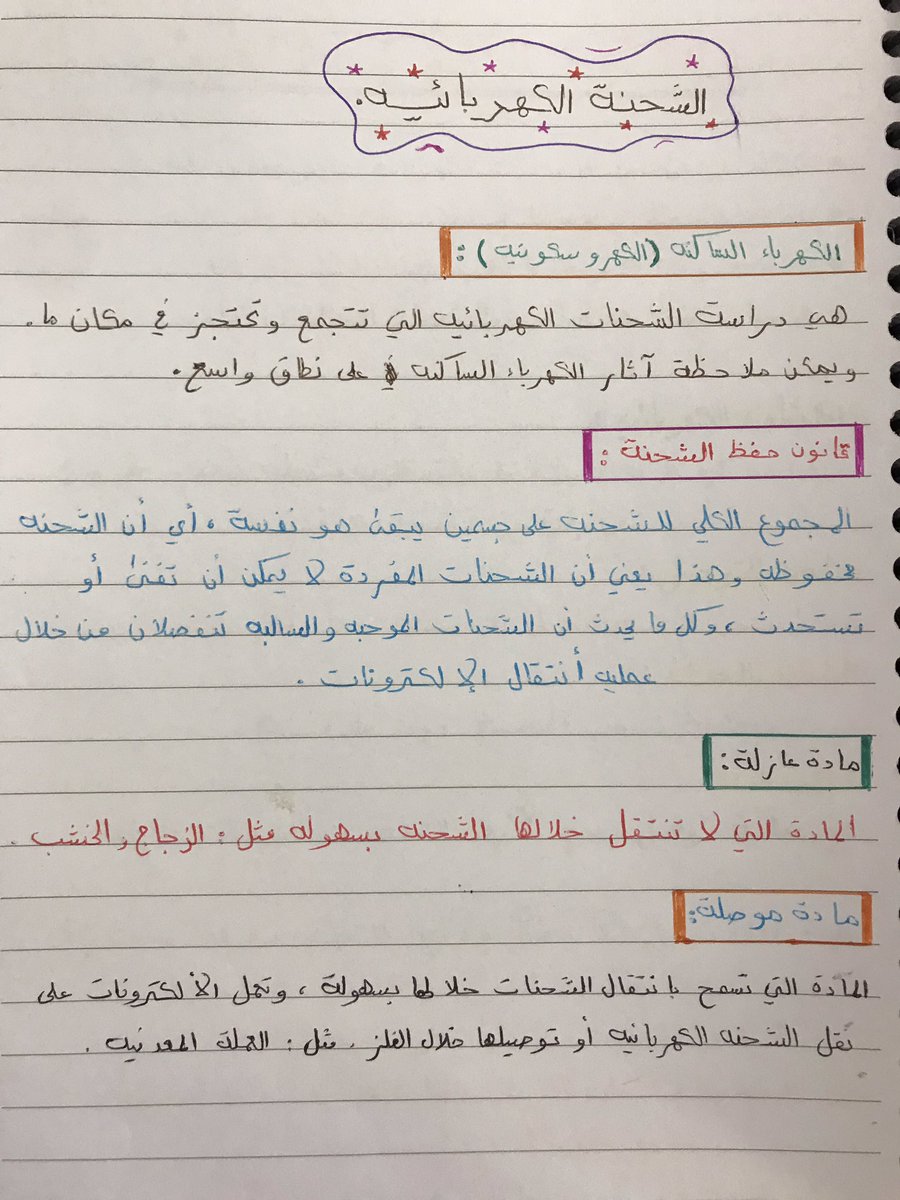 الشحنة الكهربائيه.
الكهرباء الساكنه (الكهروسكونيه) :
هي دراسة الشحنات الكهربائيه التي تتجمع وتحتجز في مكان ما.
ويمكن ملاحظة آثار الكهرباء الساكنه على نطاق واسع.
قانون حفظ الشحنة :
المجموع الكلي للشحنه على جسمين يبقى هو نفسة ، أي أن الشحنه
محفوظه وهذا يعني أن الشحنات المفردة لا يمكن أن تفنى أو
تستحدث ، وكل ما يحدث أن الشحنات الموجبه والسالبه تنفصلان من خلال
عمليه أنتقال الإلكترونات .
مادة عازلة :
المادة التي لا تنتقل خلالها الشحنه بسهوله مثل : الزجاج والخشب .
مادة موصلة :
المآدة التي تسمح بانتقال الشحنات خلالها بسهولة ، وتعمل الألكترونات على
نقل الشحنه الكهربائيه أو توصيلها خلال الفلز . مثل : العملة المعدنيه .